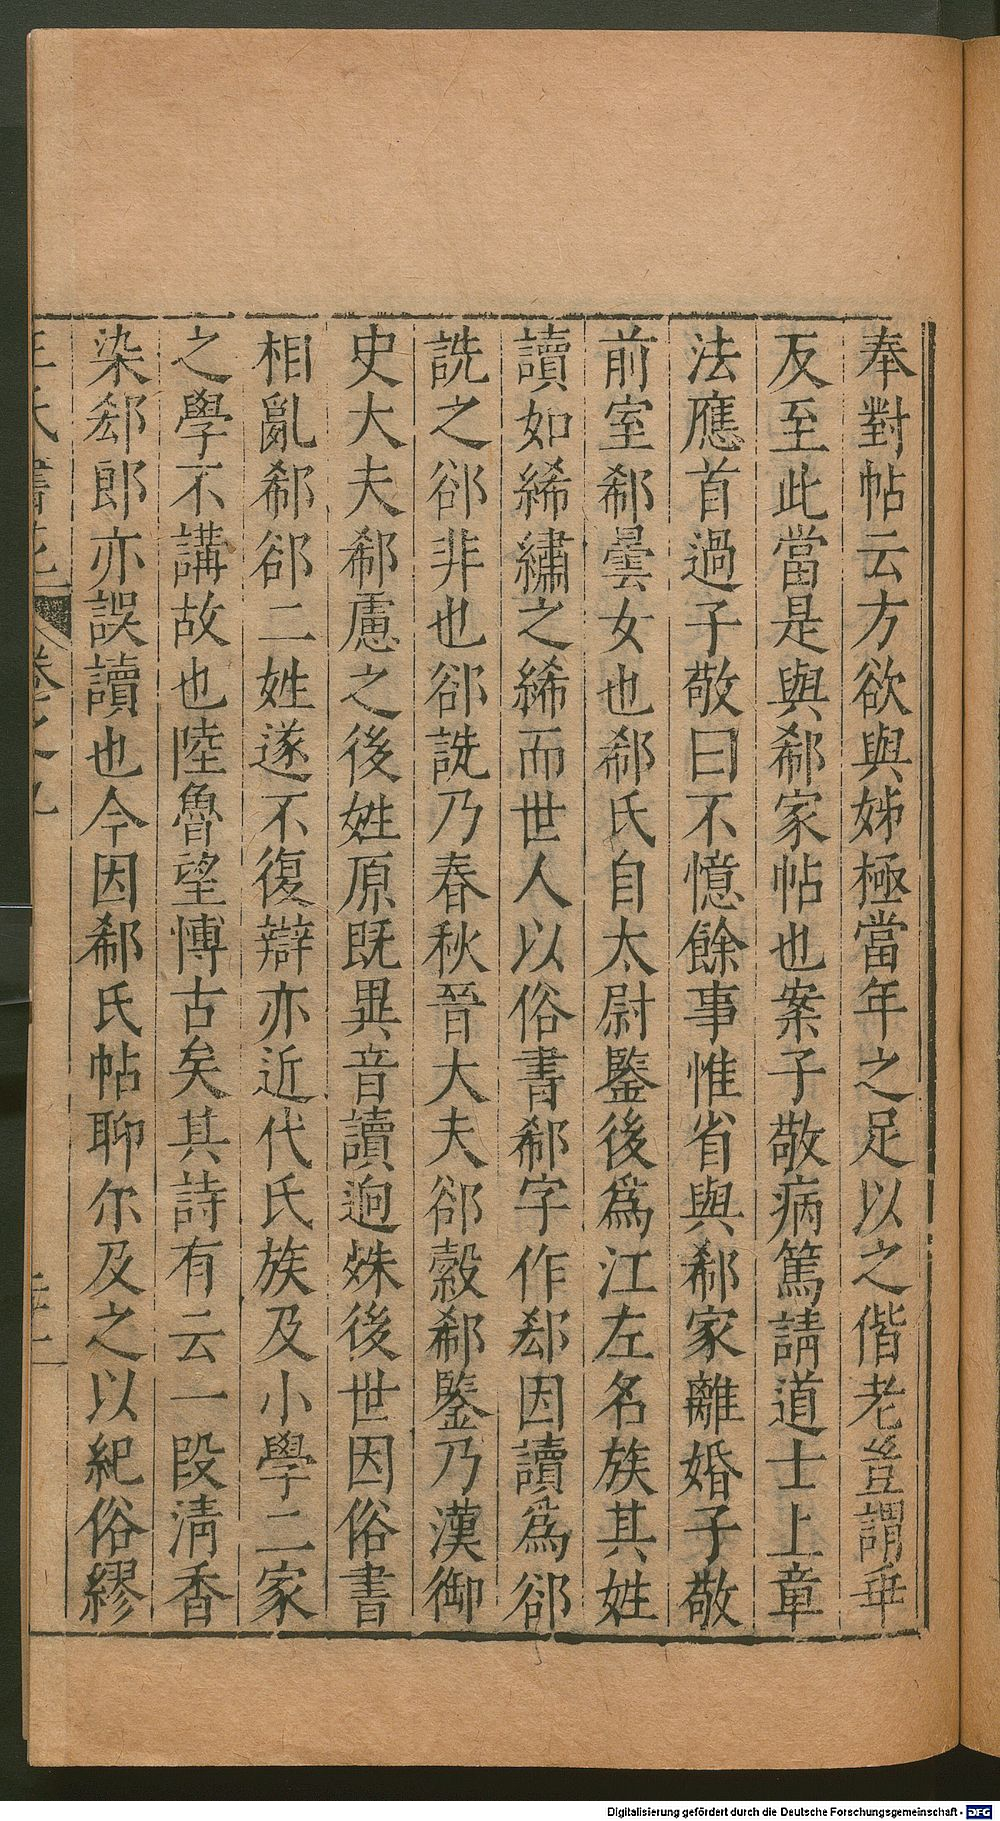 奉對帖云方欲與姊極當年之足以之偕老豈謂乖
反至此當是與郗家帖也案子敬病篤請道士上章
法應首過子敬曰不憶餘事惟省與郗家離婚子敬
前室郗曇女也郗氏自太尉鑒後爲江左名族其姓
讀如絺繡之絺而世人以俗書郗字作郄因讀爲郤
詵之郤非也郤詵乃春秋晉大夫郤縠郗鑒乃漢御
史大夫郗慮之後姓原既異音讀逈姝後世因俗書
相亂郗郤二姓遂不復辯亦近代氏族及小學二家
之學不講故也陸魯望愽古矣其詩有云一段清香
染郄郎亦誤讀也今因郗氏帖聊尔及之以紀俗繆
王氏書苑 卷之九
Digitalisierung gefördert durch die Deutsche Forschungsgemeinschaft - DFG